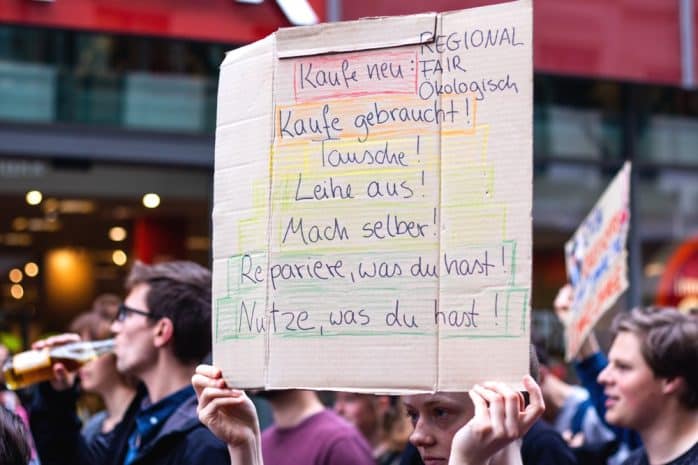 Kaufe neu: REGIONAL
FAIR
Ökologisch
Kaufe gebraucht!
Tausche!
Leihe aus!
Mach selber!
Repariere, was du hast!
Nutze, was du hast!